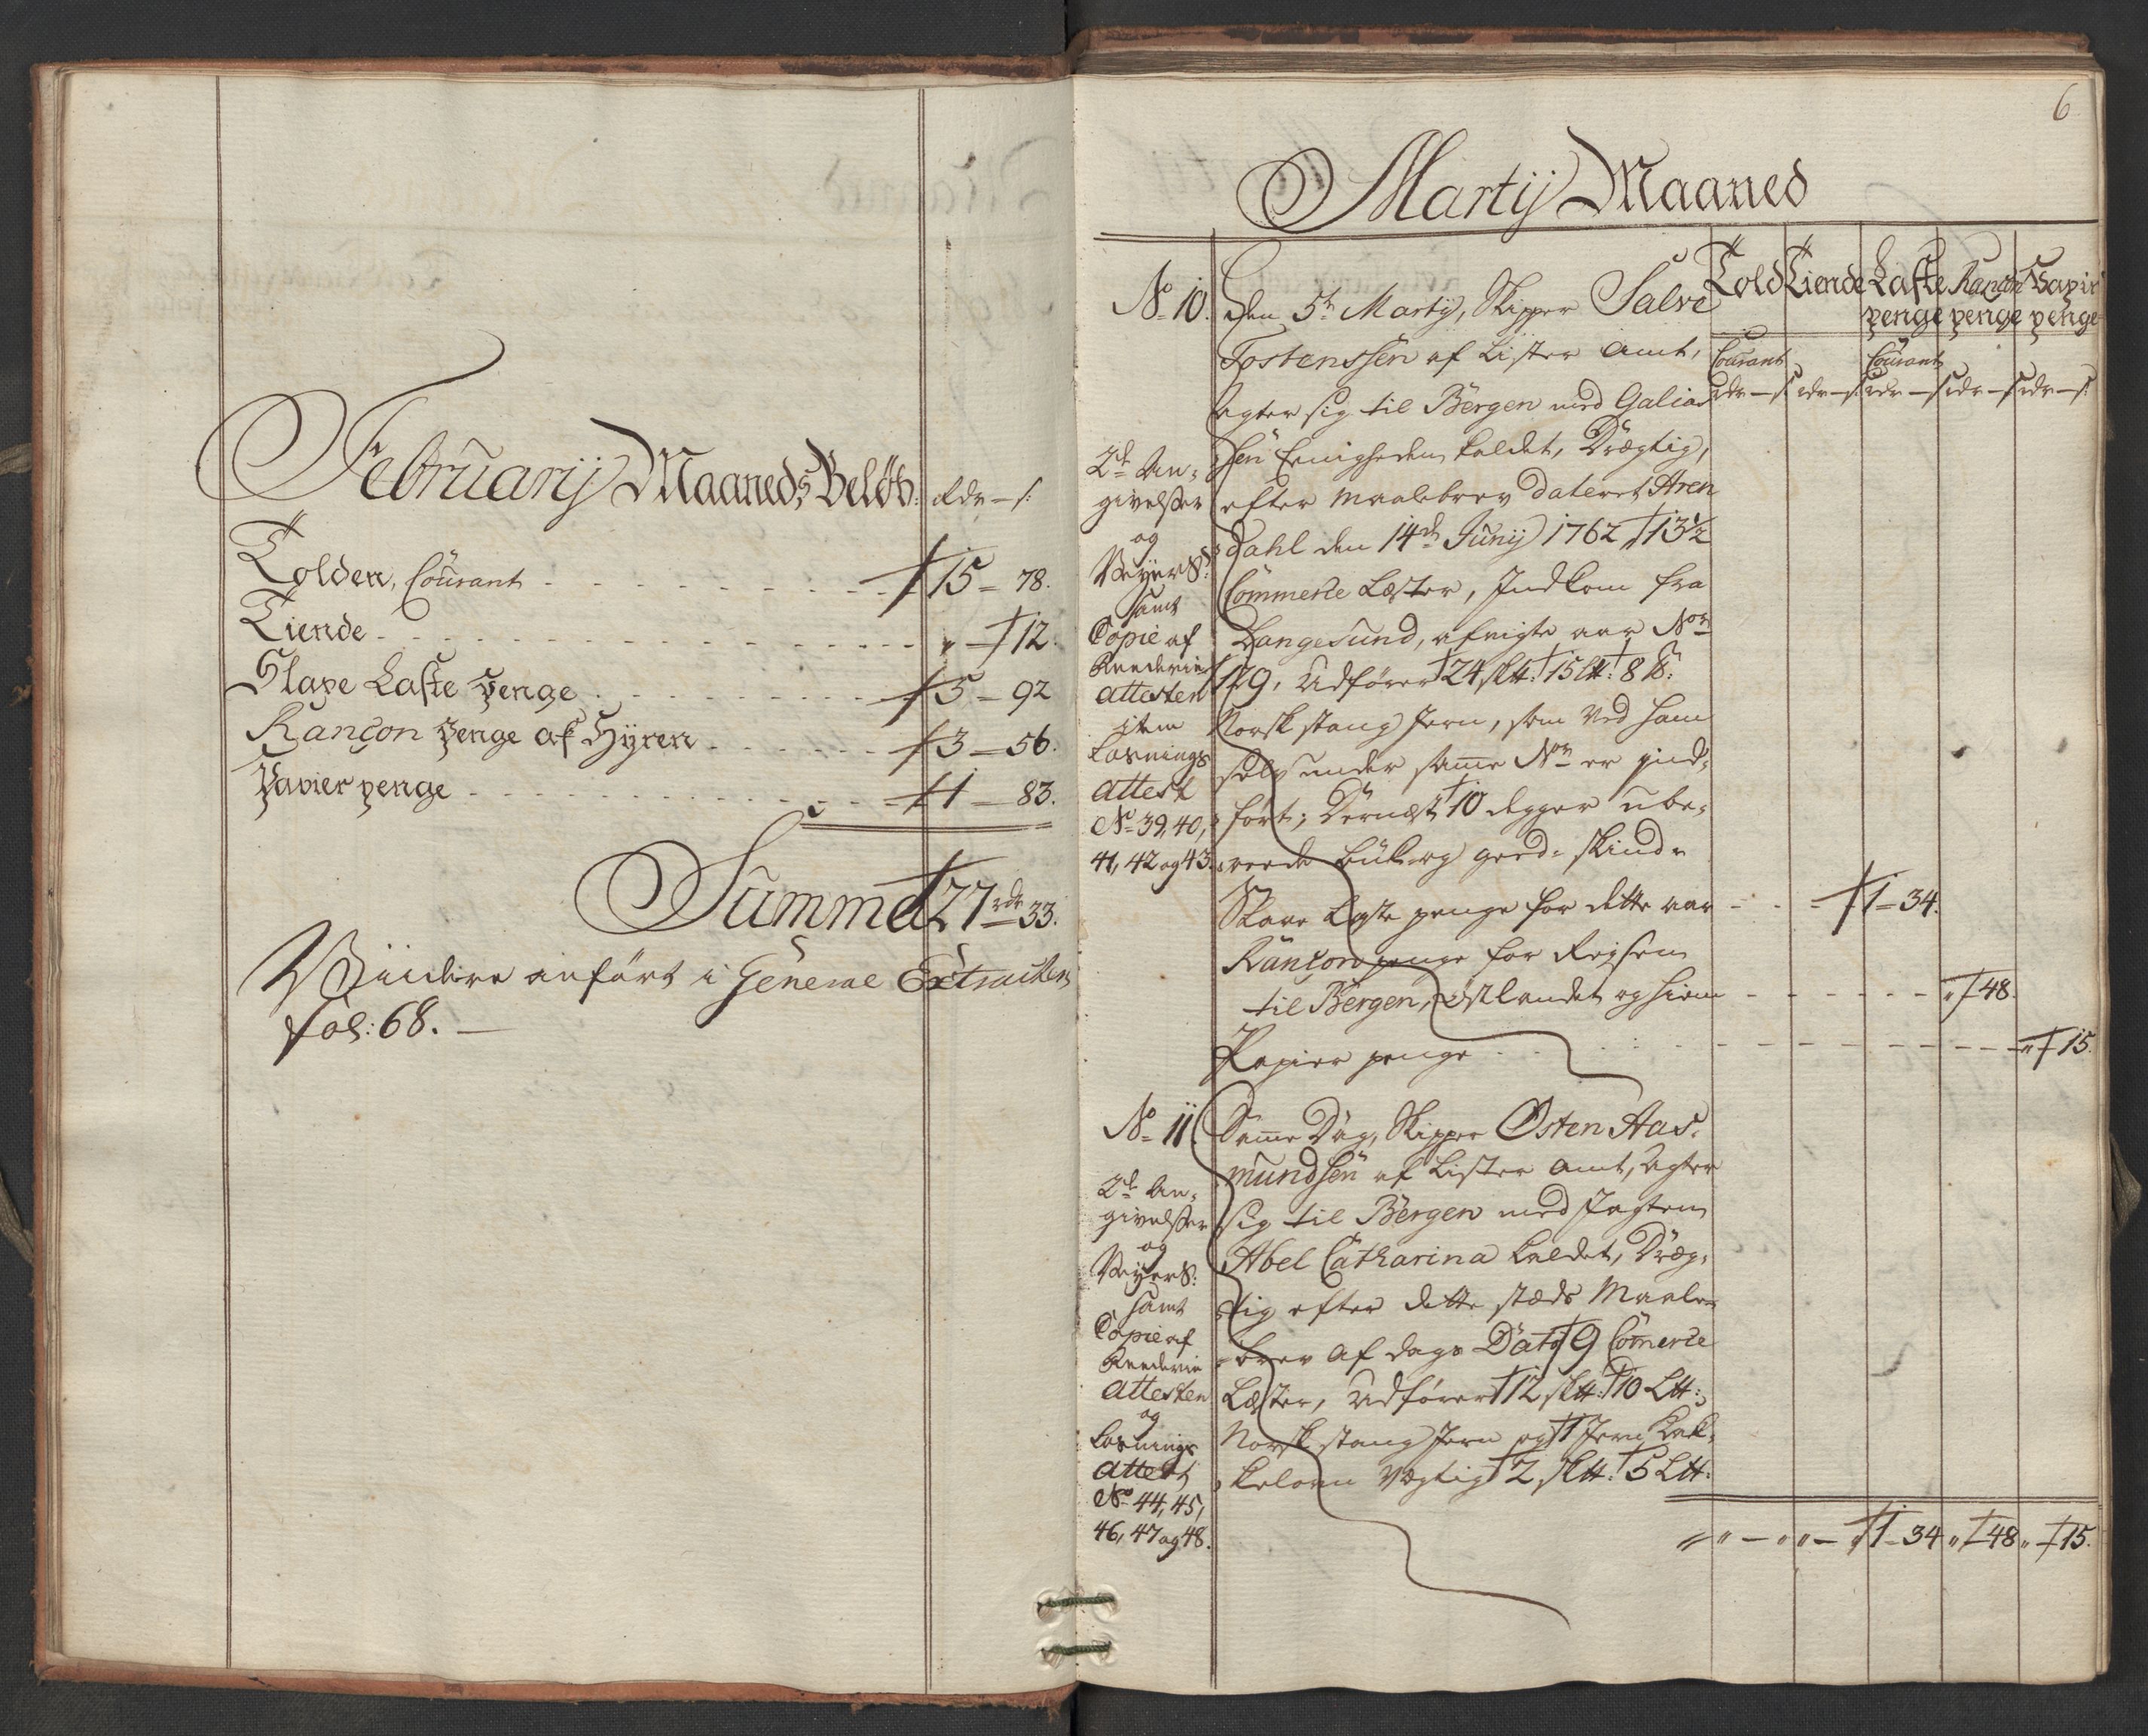 Februarij Maaneds Beløb: Rdr — s:
Tolden, Courant - - - 15 - 78.
Tiende - - - " - 12.
Slave Laste Penge - - - 5 - 92
Rançon Penge af Hyren - - - 3 - 56.
Papier penge - - - 1 - 83.
Summa 27 rdr 33.
Viidere anført i General Extracten
fol: 68. —
6
Martij Maaned
Told Tiende Laste penge Rançon penge Papir penge
Courant Courant
rdr — s rdr — s rdr — s rdr — s rdr — s
No 10.
2de An-
givelsser
og
Veyers:
samt
Copie af
Reederie
attesten
item
Losnings
Attest
No 39, 40,
41, 42 og 43.
Den 5te Martij, Skipper Salve
Tostenssen af Lister Amt,
Agter sig til Bergen med Galias
sen Eenigheden kaldet, Drægtig,
efter Maalebrev dateret Aren
dahl den 14de Junij 1762 13½
Commerce Læster, Indkom fra
Langesund, afvigte aar Nom
129, Udfører 24 sltt: 15 ltt: 8 lb:
Norsk stang Jern, som ved ham
selv under samme Nom er ind-
ført; Dernæst 10 degger ube-
reede buk og geed-skind -
Slave Laste penge for dette aar - - - 1 - 34.
Rançon penge for Reysen
til Bergen, østlandet og hiem - - - " 48.
Papier penge - - - " 15.
No 11.
2de An-
givelsser
og
Veyers:
samt
Copie af
Reederie
attesten
og
Losnings
Attest
No 44, 45,
46, 47 og 48.
Samme Dag, Skipper Østen Aas-
mundsen af Lister Amt, Agter
sig til Bergen med Jagten
Abel Catharina kaldet, Dræg-
tig efter dette stæds Maale-
brev af dags Dato 9 Commerce
Læster, Udfører 12 sltt: 10 Ltt:
Norsk stang Jern og 1 Jern Kak-
kelovn Vægtig 2 sltt: 5 Ltt:
" " — " " — " 1 - 34 " 48 " 15.